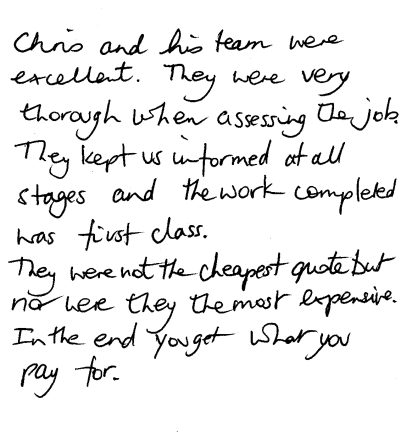 Chris and his team were
excellent. They were very
thorough when assessing the job.
They kept us informed at all
stages and the work completed
was first class.
They were not the cheapest quote but
nor were they the most expensive.
In the end you get what you
pay for.